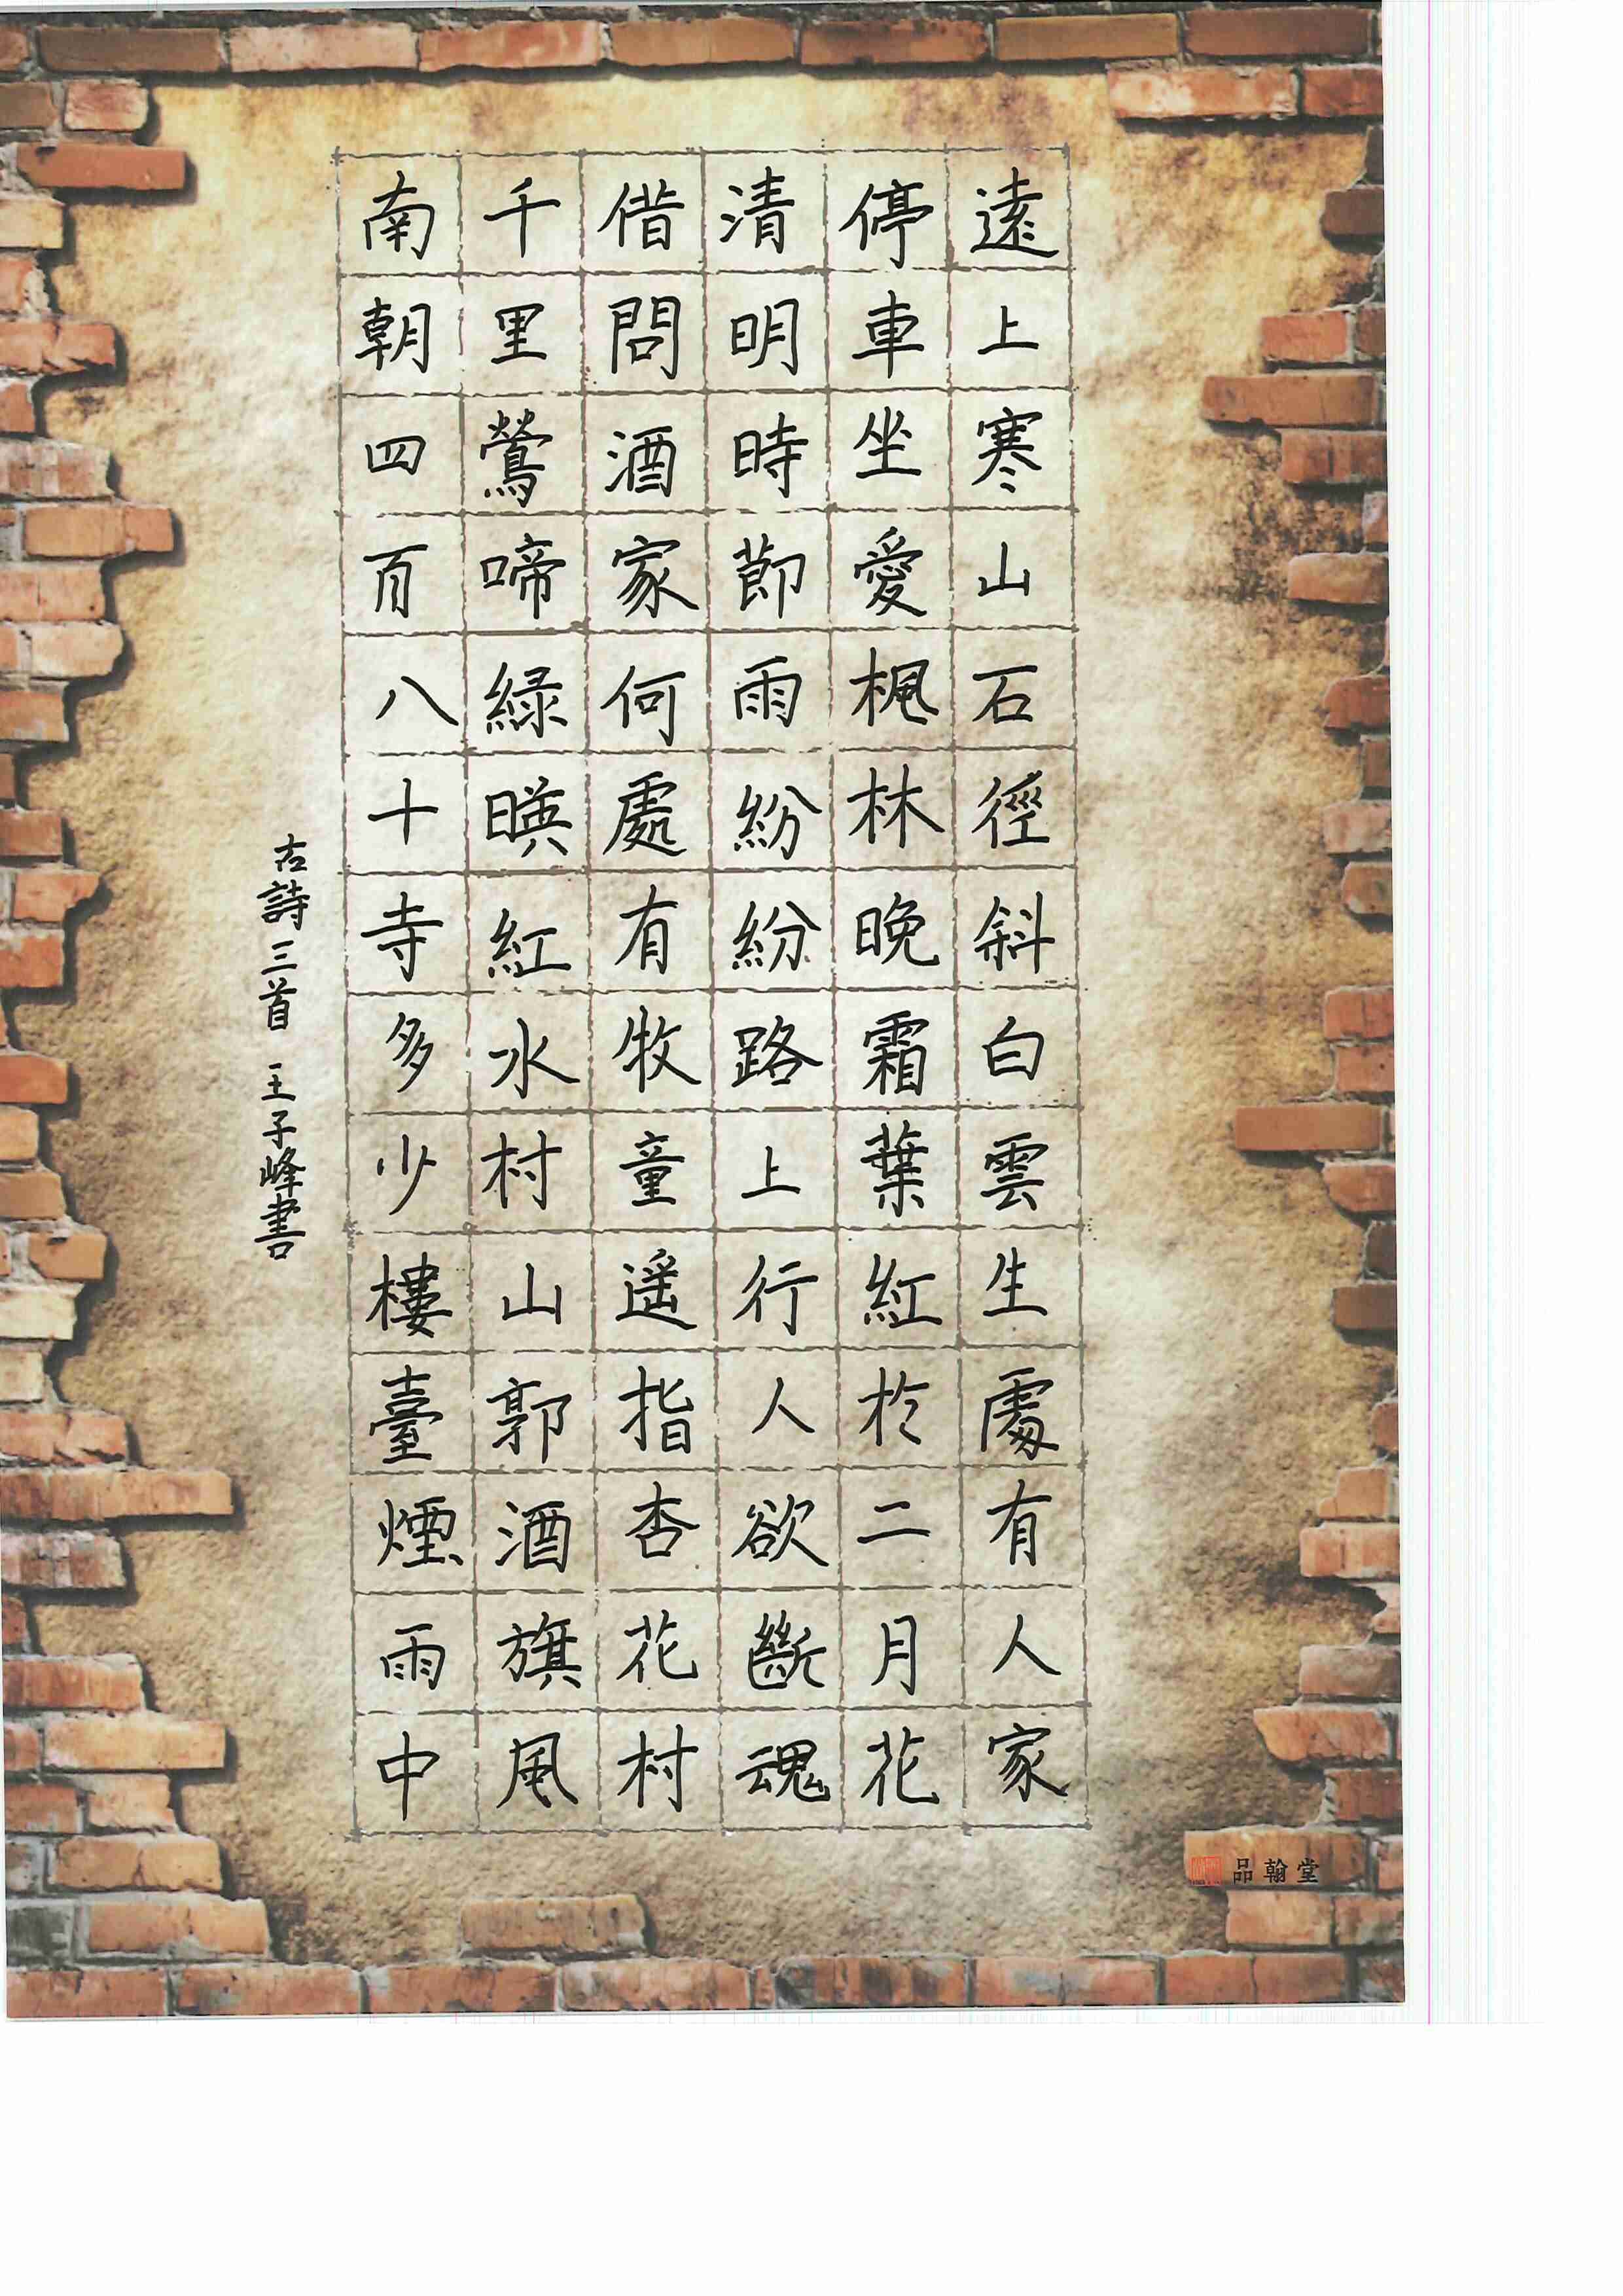 遠上寒山石徑斜白雲生處有人家
停車坐愛楓林晚霜葉紅於二月花
清明時節雨紛紛路上行人欲斷魂
借問酒家何處有牧童遥指杏花村
千里鶯啼緑暎紅水村山郭酒旗風
南朝四百八十寺多少樓臺煙雨中
古詩三首 王子峰書
品翰堂